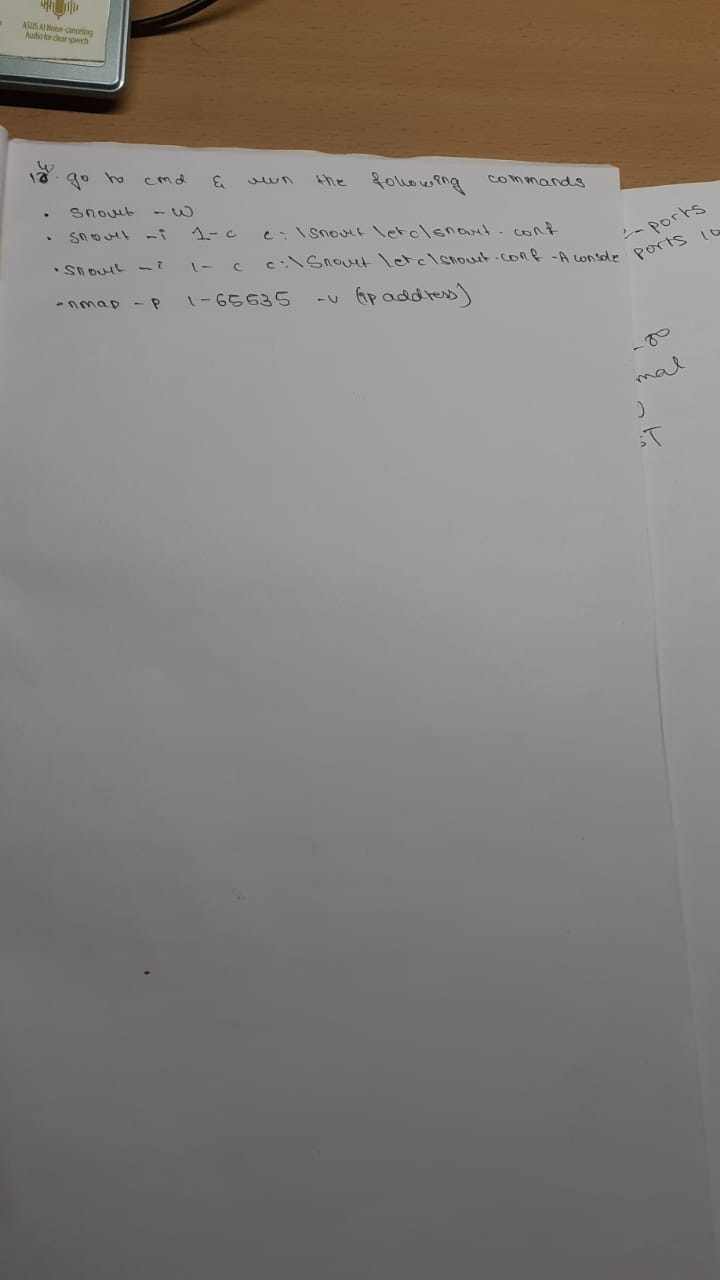 ASUS AI Noise-canceling
Audio for clear speech
go to cmd & run the following commands
• snort -W
• snort -i 1-c c:\snort\etc\snort.conf
• snort -i 1-c c:\Snort\etc\snort.conf -A console
• nmap -p 1-65535 -v (ip address)
-ports
ports 10
-80
mal
)
ST